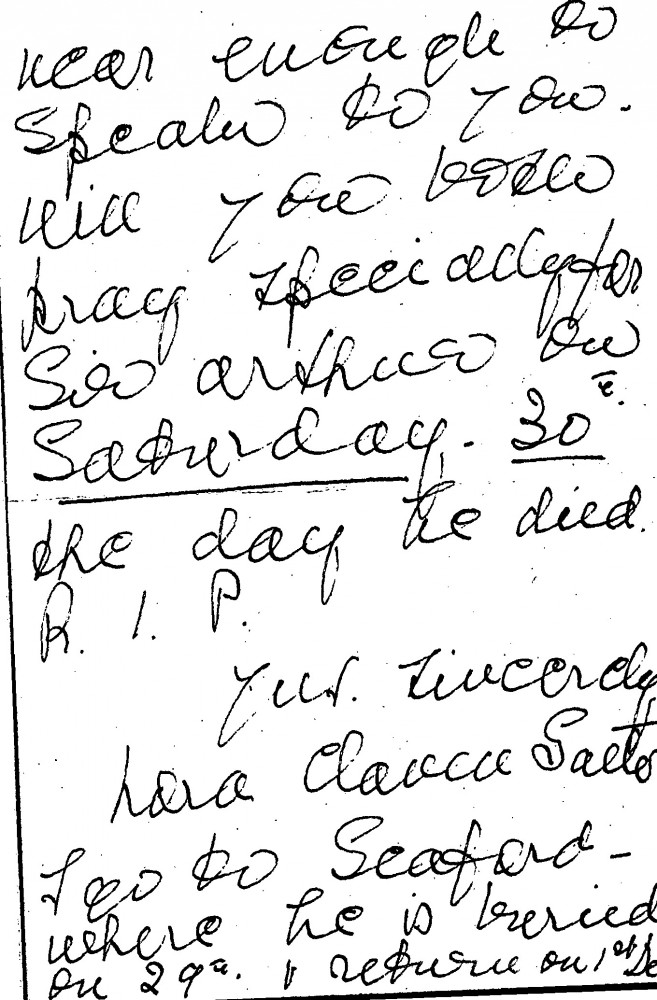 near enough to
speak to you.
will you both
pray specially for
Sir Arthur on
Saturday. 30th.
the day he died.
R. I. P.
Yrs. sincerely
Clavell
I go to Seaford -
where he is buried
on 29th. & return on 1st De